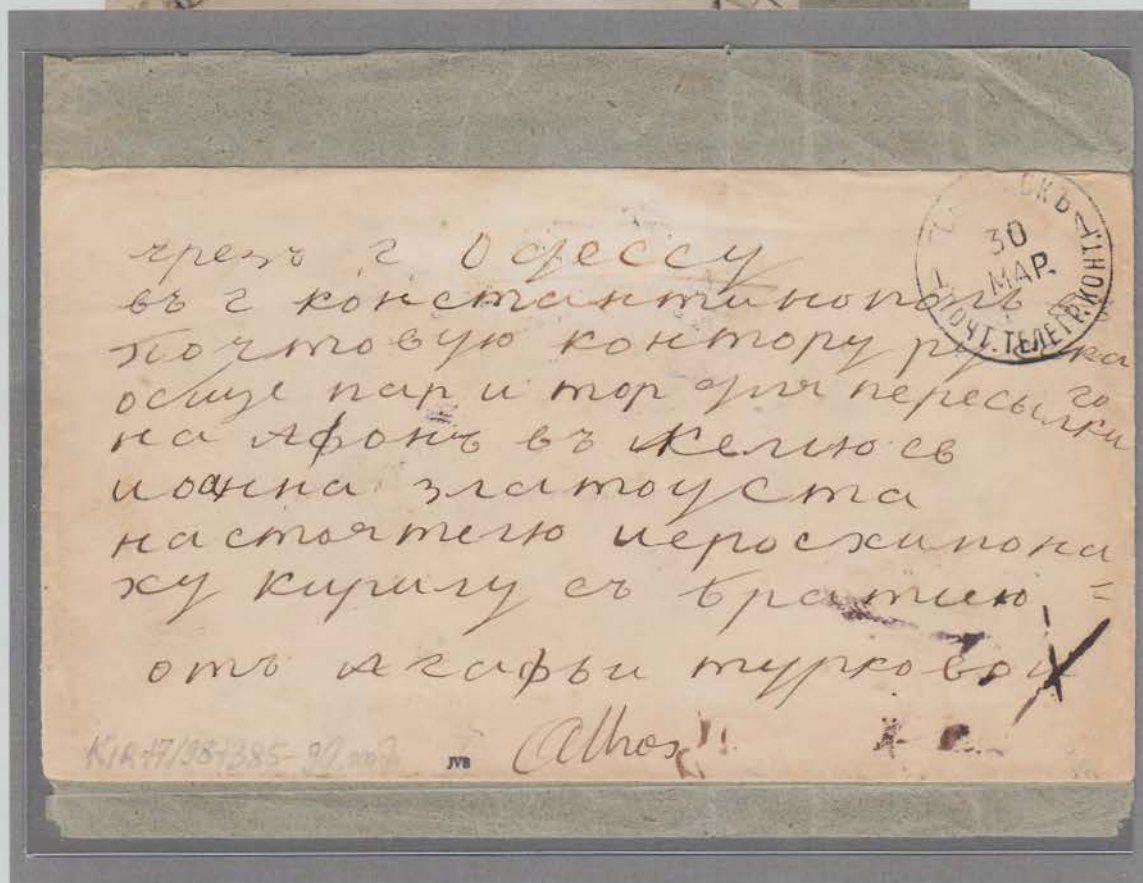 чрезъ г Одессу
въ г константинополь
почтовую контору русска
го
обще пар и тор для пересылки
на Афонъ въ Келию св
иоанна златоуста
настоятелю иеросхимона
ху кирилу съ братиею
отъ Агафьи турковой
Athos
JVB
30
МАР.
ПОЧТ. ТЕЛЕГР. КОНТ.